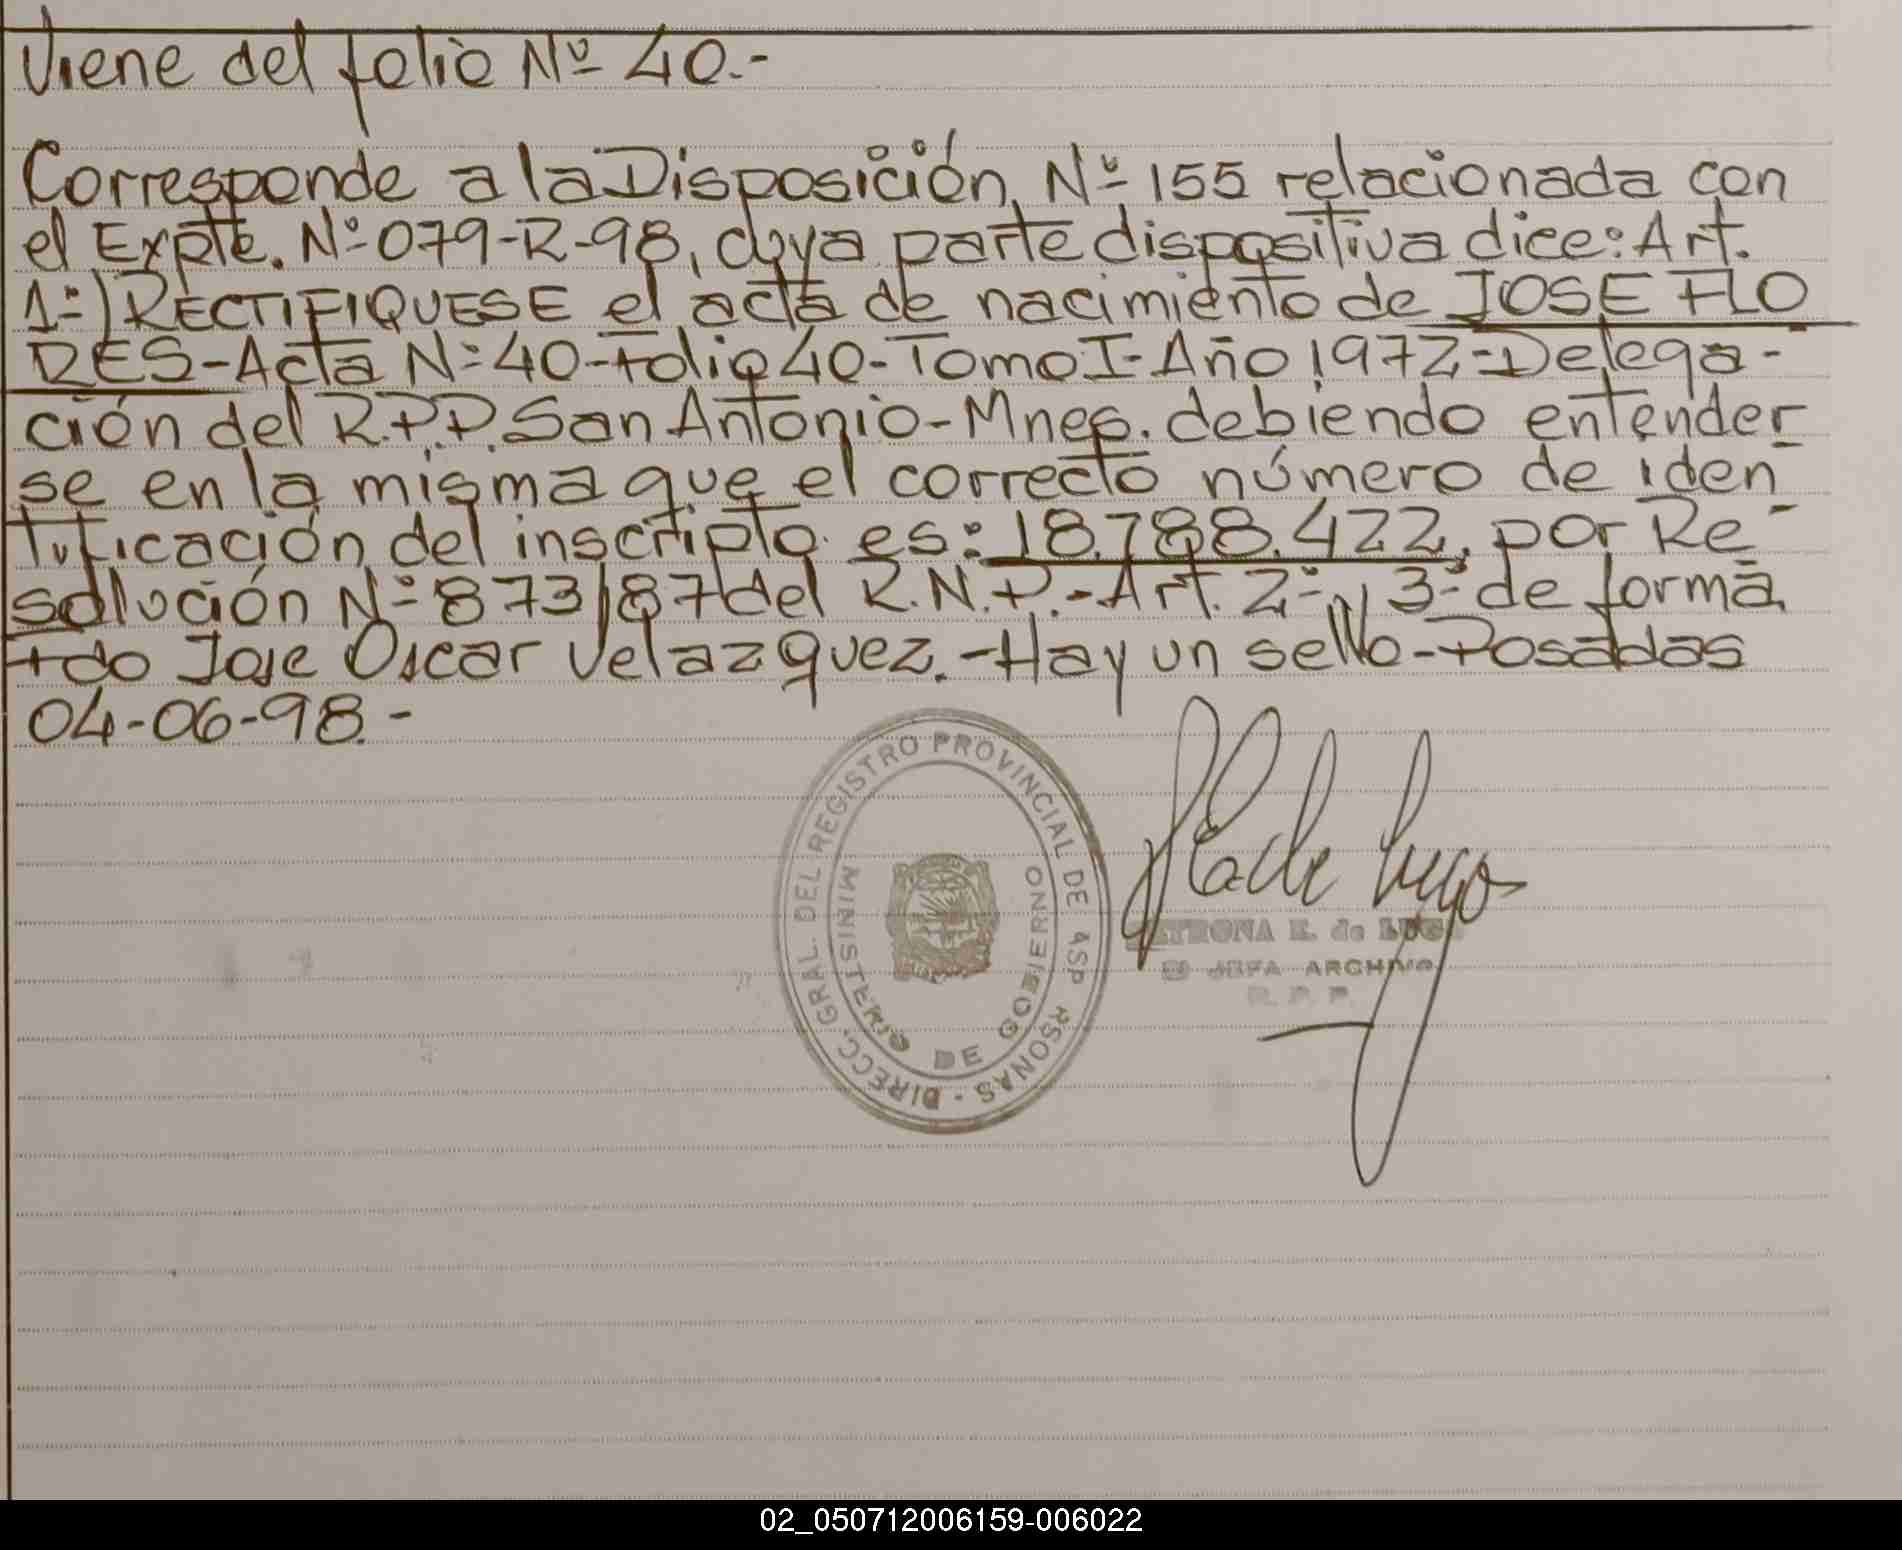 Viene del folio Nº 40.-
Corresponde a la Disposición Nº 155 relacionada con
el Expte. Nº 079-R-98, cuya parte dispositiva dice: Art.
1º) RECTIFIQUESE el acta de nacimiento de JOSE FLO
RES-Acta Nº 40-Folio 40-Tomo I-Año 1972-Delega-
ción del R.P.P. San Antonio-Mnes. debiendo entender
se en la misma que el correcto número de iden
tificación del inscripto es: 18.788.422, por Re-
solución Nº 873/87 del R.N.P.-Art. 2º, 3º de forma
Fdo Jose Oscar Velazquez.-Hay un sello-Posadas
04-06-98.-
DIRECC. GRAL. DEL REGISTRO PROVINCIAL DE
MINISTERIO DE GOBIERNO
E. de LUGO
JEFA ARCHIVO
R. P. P.
02_050712006159-006022